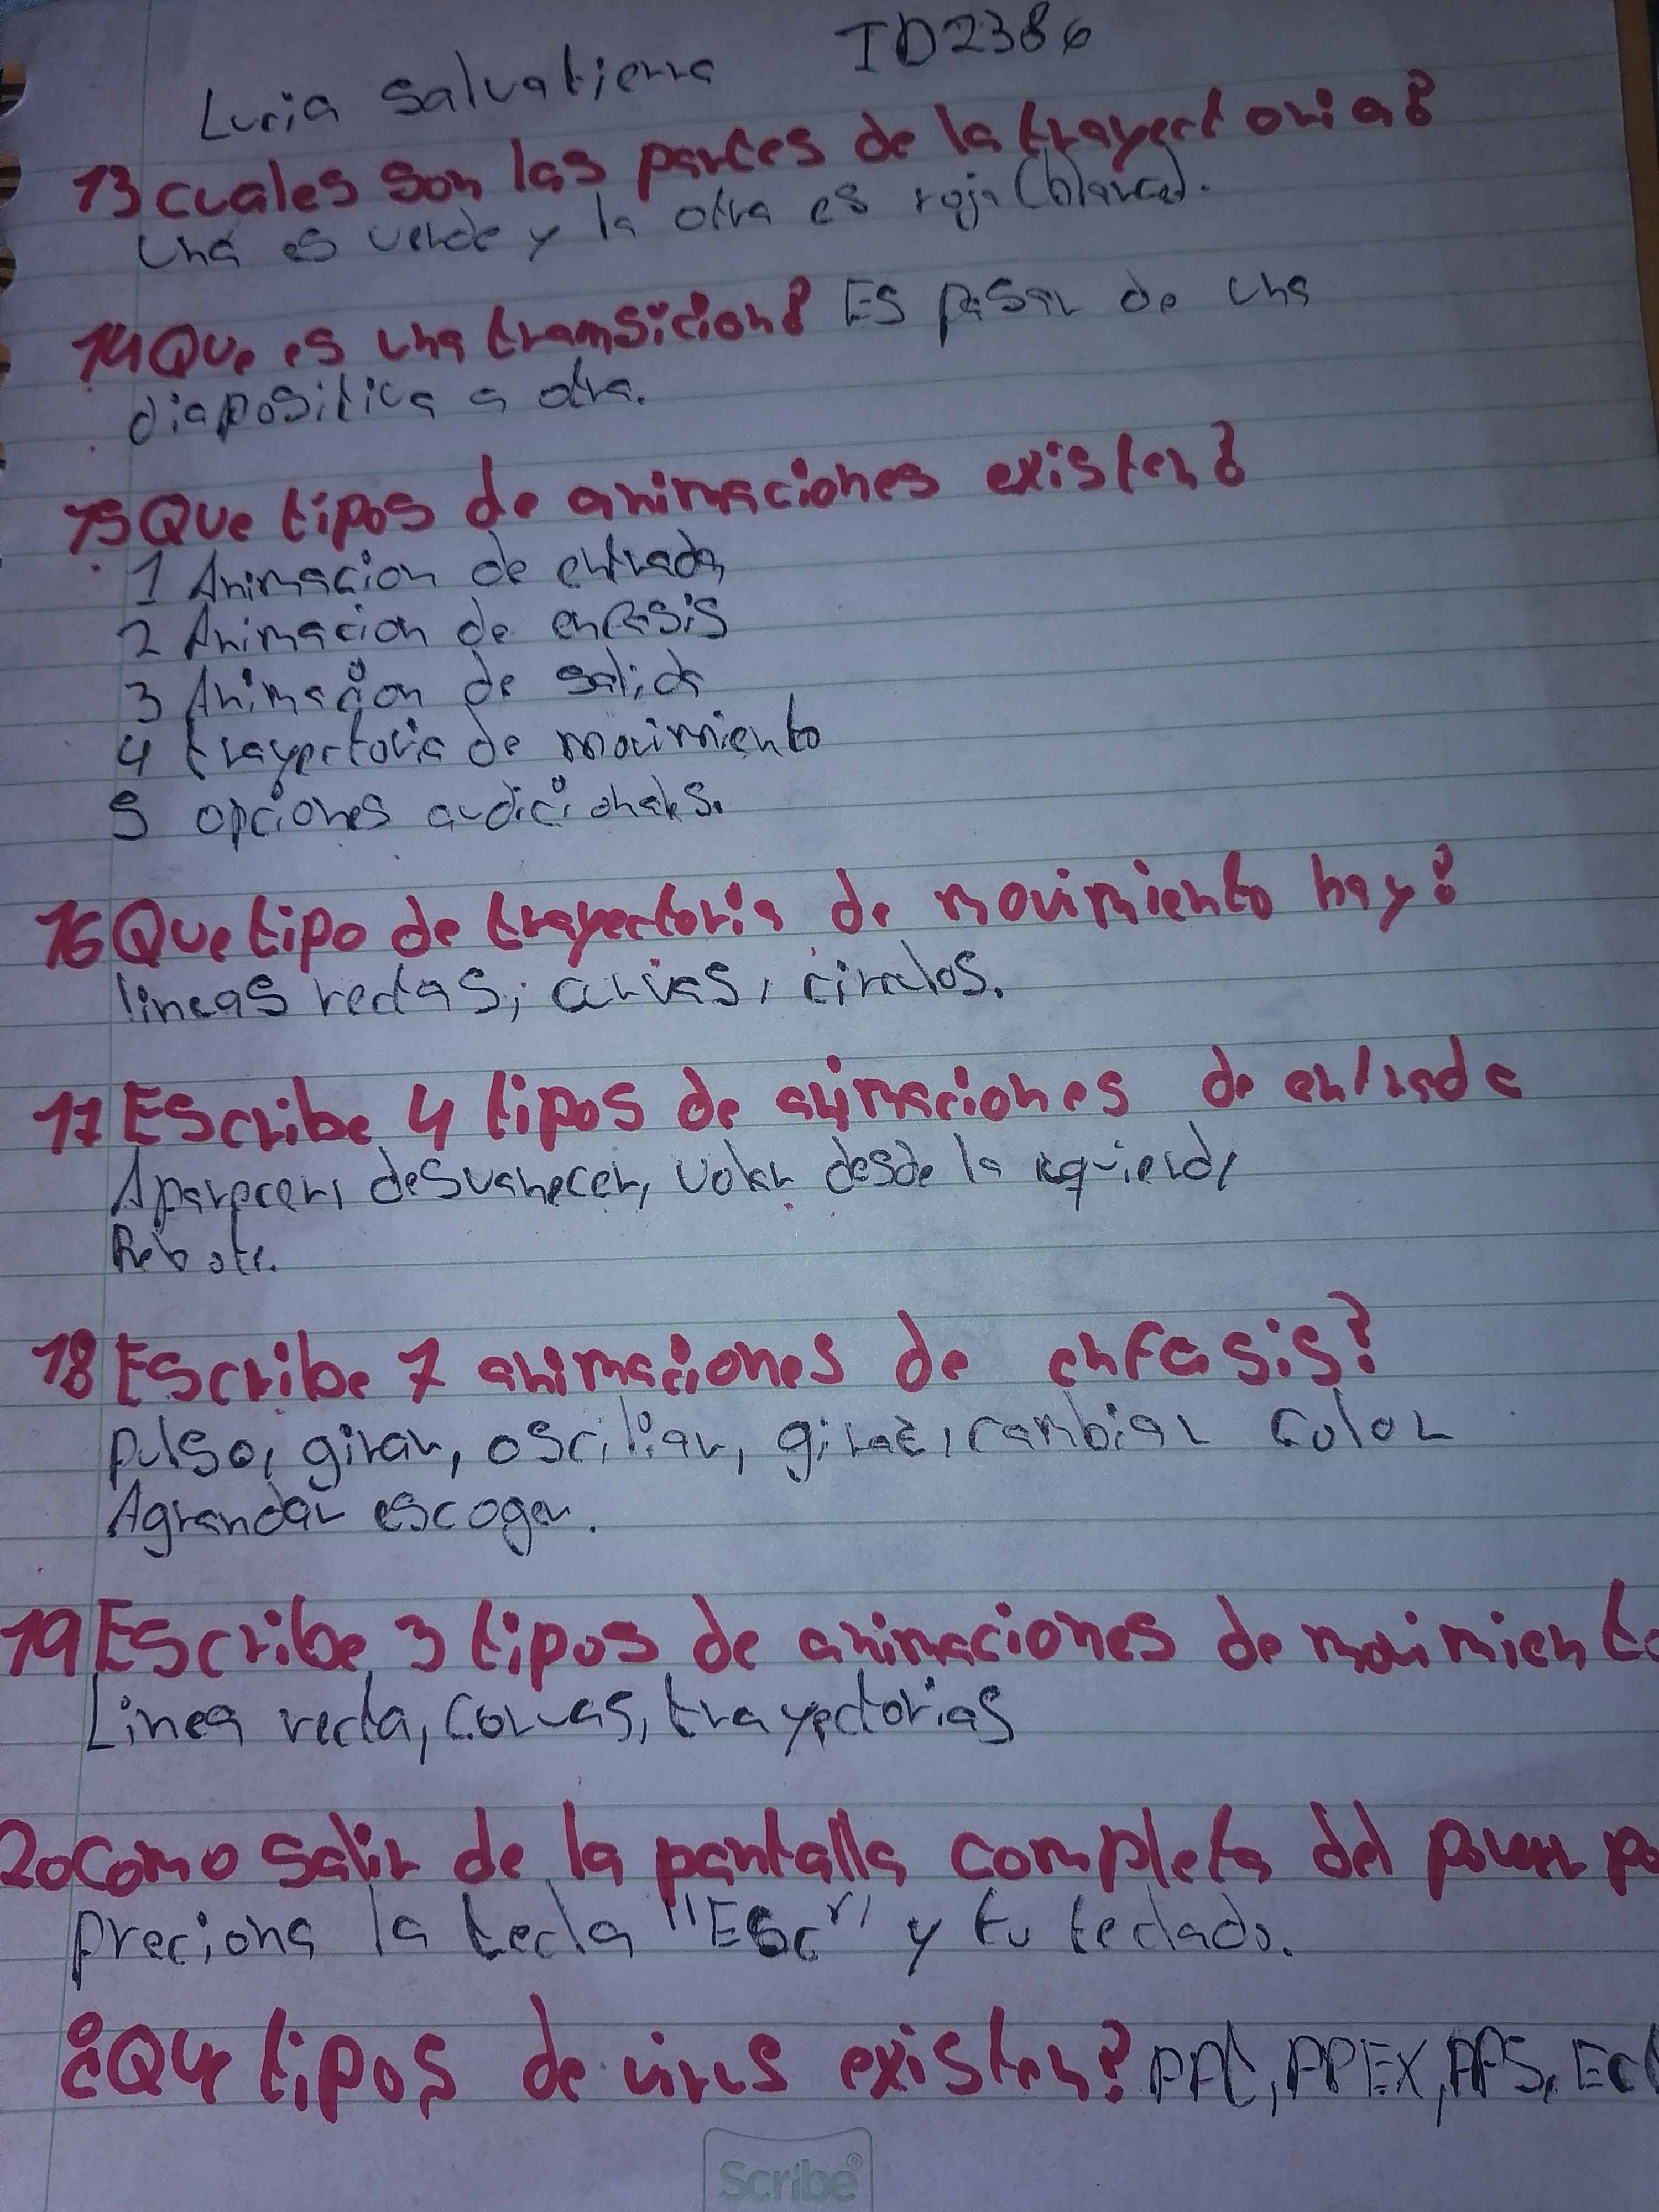 Luria Salvatierra ID2386
13 cuales son las partes de la trayectoria?
una es verde y la otra es roja (blanca).
14 Que es una transicion? Es pasar de una
diapositica a otra.
15 Que tipos de animaciones existen?
1 Animacion de entrada
2 Animacion de enfasis
3 Animacion de salida
4 trayectoria de movimiento
5 opciones audicionales.
16 Que tipo de trayectoria de movimiento hay?
lineas rectas, curvas, circulos.
17 Escribe 4 tipos de animaciones de entrada
Aparecer, desvanecer, volar desde la izquierd,
Rebote.
18 Escribe 7 animaciones de enfasis?
pulso, girar, osciliar, girar, cambiar color
Agrandar escoger.
19 Escribe 3 tipos de animaciones de movimiento
Linea recta, corvas, trayectorias
20 Como salir de la pantalla completa del power po
preciona la tecla "Esc" y tu teclado.
¿Que tipos de virus existen? PPt, PPEX, PPS, Ect
Scribe®